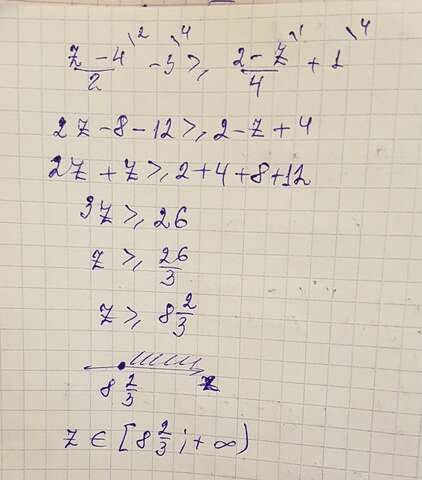 (z - 4)/2 \2 - 3 \4 ≥ (2 - z)/4 \1 + 1 \4
2z - 8 - 12 ≥ 2 - z + 4
2z + z ≥ 2 + 4 + 8 + 12
3z ≥ 26
z ≥ 26/3
z ≥ 8 2/3
8 2/3 z
z ∈ [8 2/3 ; + ∞)